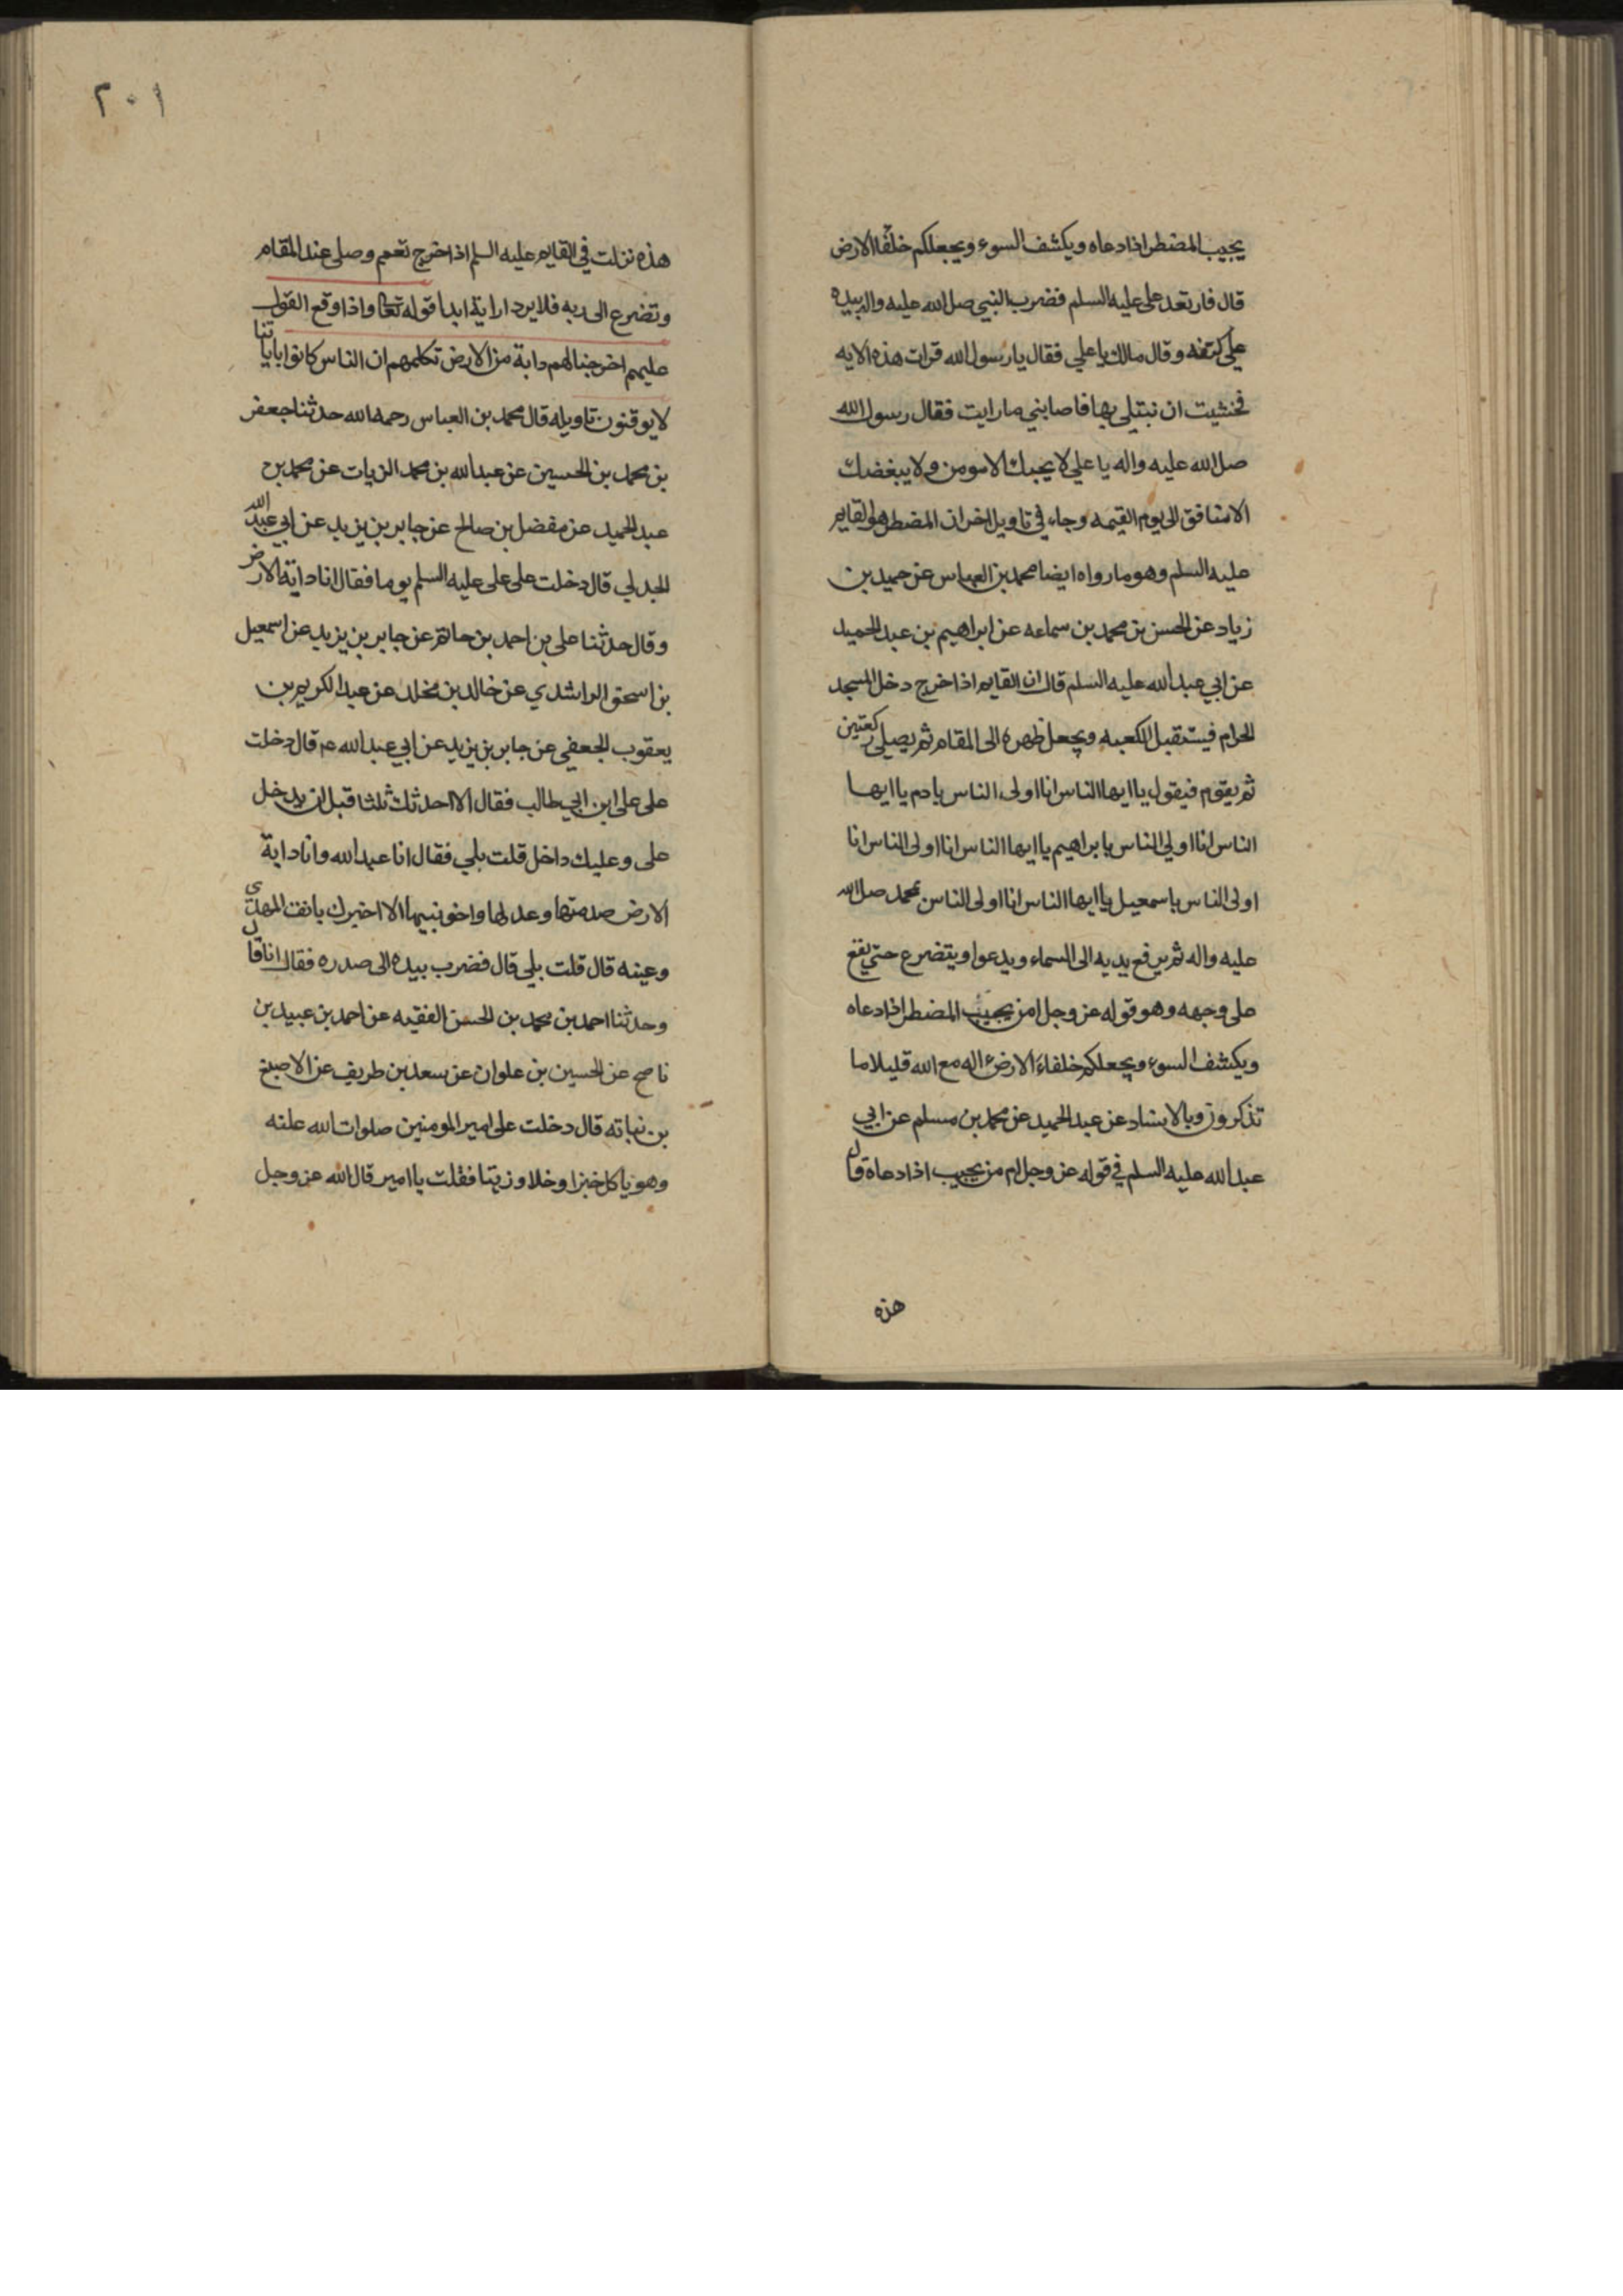 يجيب المضطر اذا دعاه ويكشف السوء ويجعلكم خلفا الارض
قال فارتعد على عليه السلم فضرب النبي صل الله عليه واله بيده
على كتفه وقال مالك يا علي فقال يا رسول الله قرات هذه الايه
فخشيت ان نبتلى بها فاصابني ما رايت فقال رسول الله
صل الله عليه واله يا علي لا يحبك الا مومن ولا يبغضك
الا منافق الى يوم القيمه وجاء في تاويل اخر ان المضطر هو القايم
عليه السلم وهو ما رواه ايضا محمد بن العباس عن حميد بن
زياد عن الحسن بن محمد بن سماعه عن ابراهيم بن عبد الحميد
عن ابي عبد الله عليه السلم قال ان القايم اذا خرج دخل المسجد
الحرام فيستقبل الكعبه ويجعل ظهره الى المقام ثم يصلى ركعتين
ثم يقوم فيقول يا ايها الناس انا اولى الناس بادم يا ايها
الناس انا اولي الناس بابراهيم يا ايها الناس انا اولى الناس انا
اولى الناس باسمعيل يا ايها الناس انا اولى الناس بمحمد صل الله
عليه واله ثم يرفع يديه الى السماء ويدعوا ويتضرع حتي يقع
على وجهه وهو قوله عز وجل امن يجيب المضطر اذا دعاه
ويكشف السوء ويجعلكم خلفاء الارض ءاله مع الله قليلا ما
تذكرون وبالاسناد عن عبد الحميد عن محمد بن مسلم عن ابي
عبد الله عليه السلم في قوله عز وجل ام من يجيب اذا دعاه قال
هذه
٢٠١
هذه نزلت في القايم عليه السلم اذا خرج تعمم وصلى عند المقام
وتضرع الى ربه فلا يرد له راية ابدا قوله تعا واذا وقع القول
عليهم اخرجنا لهم دابة من الارض تكلمهم ان الناس كانوا باياتنا
لا يوقنون تاويله قال محمد بن العباس رحمه الله حدثنا جعفر
بن محمد بن الحسين عن عبد الله بن محمد الزيات عن محمد بن
عبد الحميد عن مفضل بن صالح عن جابر بن يزيد عن ابي عبد الله
الجدلي قال دخلت على على عليه السلم يوما فقال انا دابة الارض
وقال حدثنا على بن احمد بن حاتم عن جابر بن يزيد عن اسمعيل
بن اسحق الراشدي عن خالد بن مخلد عن عبد الكريم بن
يعقوب الجعفي عن جابر بن يزيد عن ابي عبد الله عم قال دخلت
على على ابن ابي طالب فقال الا احدثك ثلثا قبل ان يدخل
على وعليك داخل قلت بلي فقال انا عبد الله وانا دابة
الارض صدقها وعدلها واخو نبيها الا اخبرك بانف المهدى
وعينه قال قلت بلي قال فضرب بيده الى صدره فقال انا قال
وحدثنا احمد بن محمد بن الحسن الفقيه عن احمد بن عبيد بن
ناصح عن الحسين بن علوان عن سعد بن طريف عن الاصبغ
بن نباته قال دخلت على امير المومنين صلوات الله عليه
وهو ياكل خبزا وخلا وزيتا فقلت يا امير قال الله عز وجل